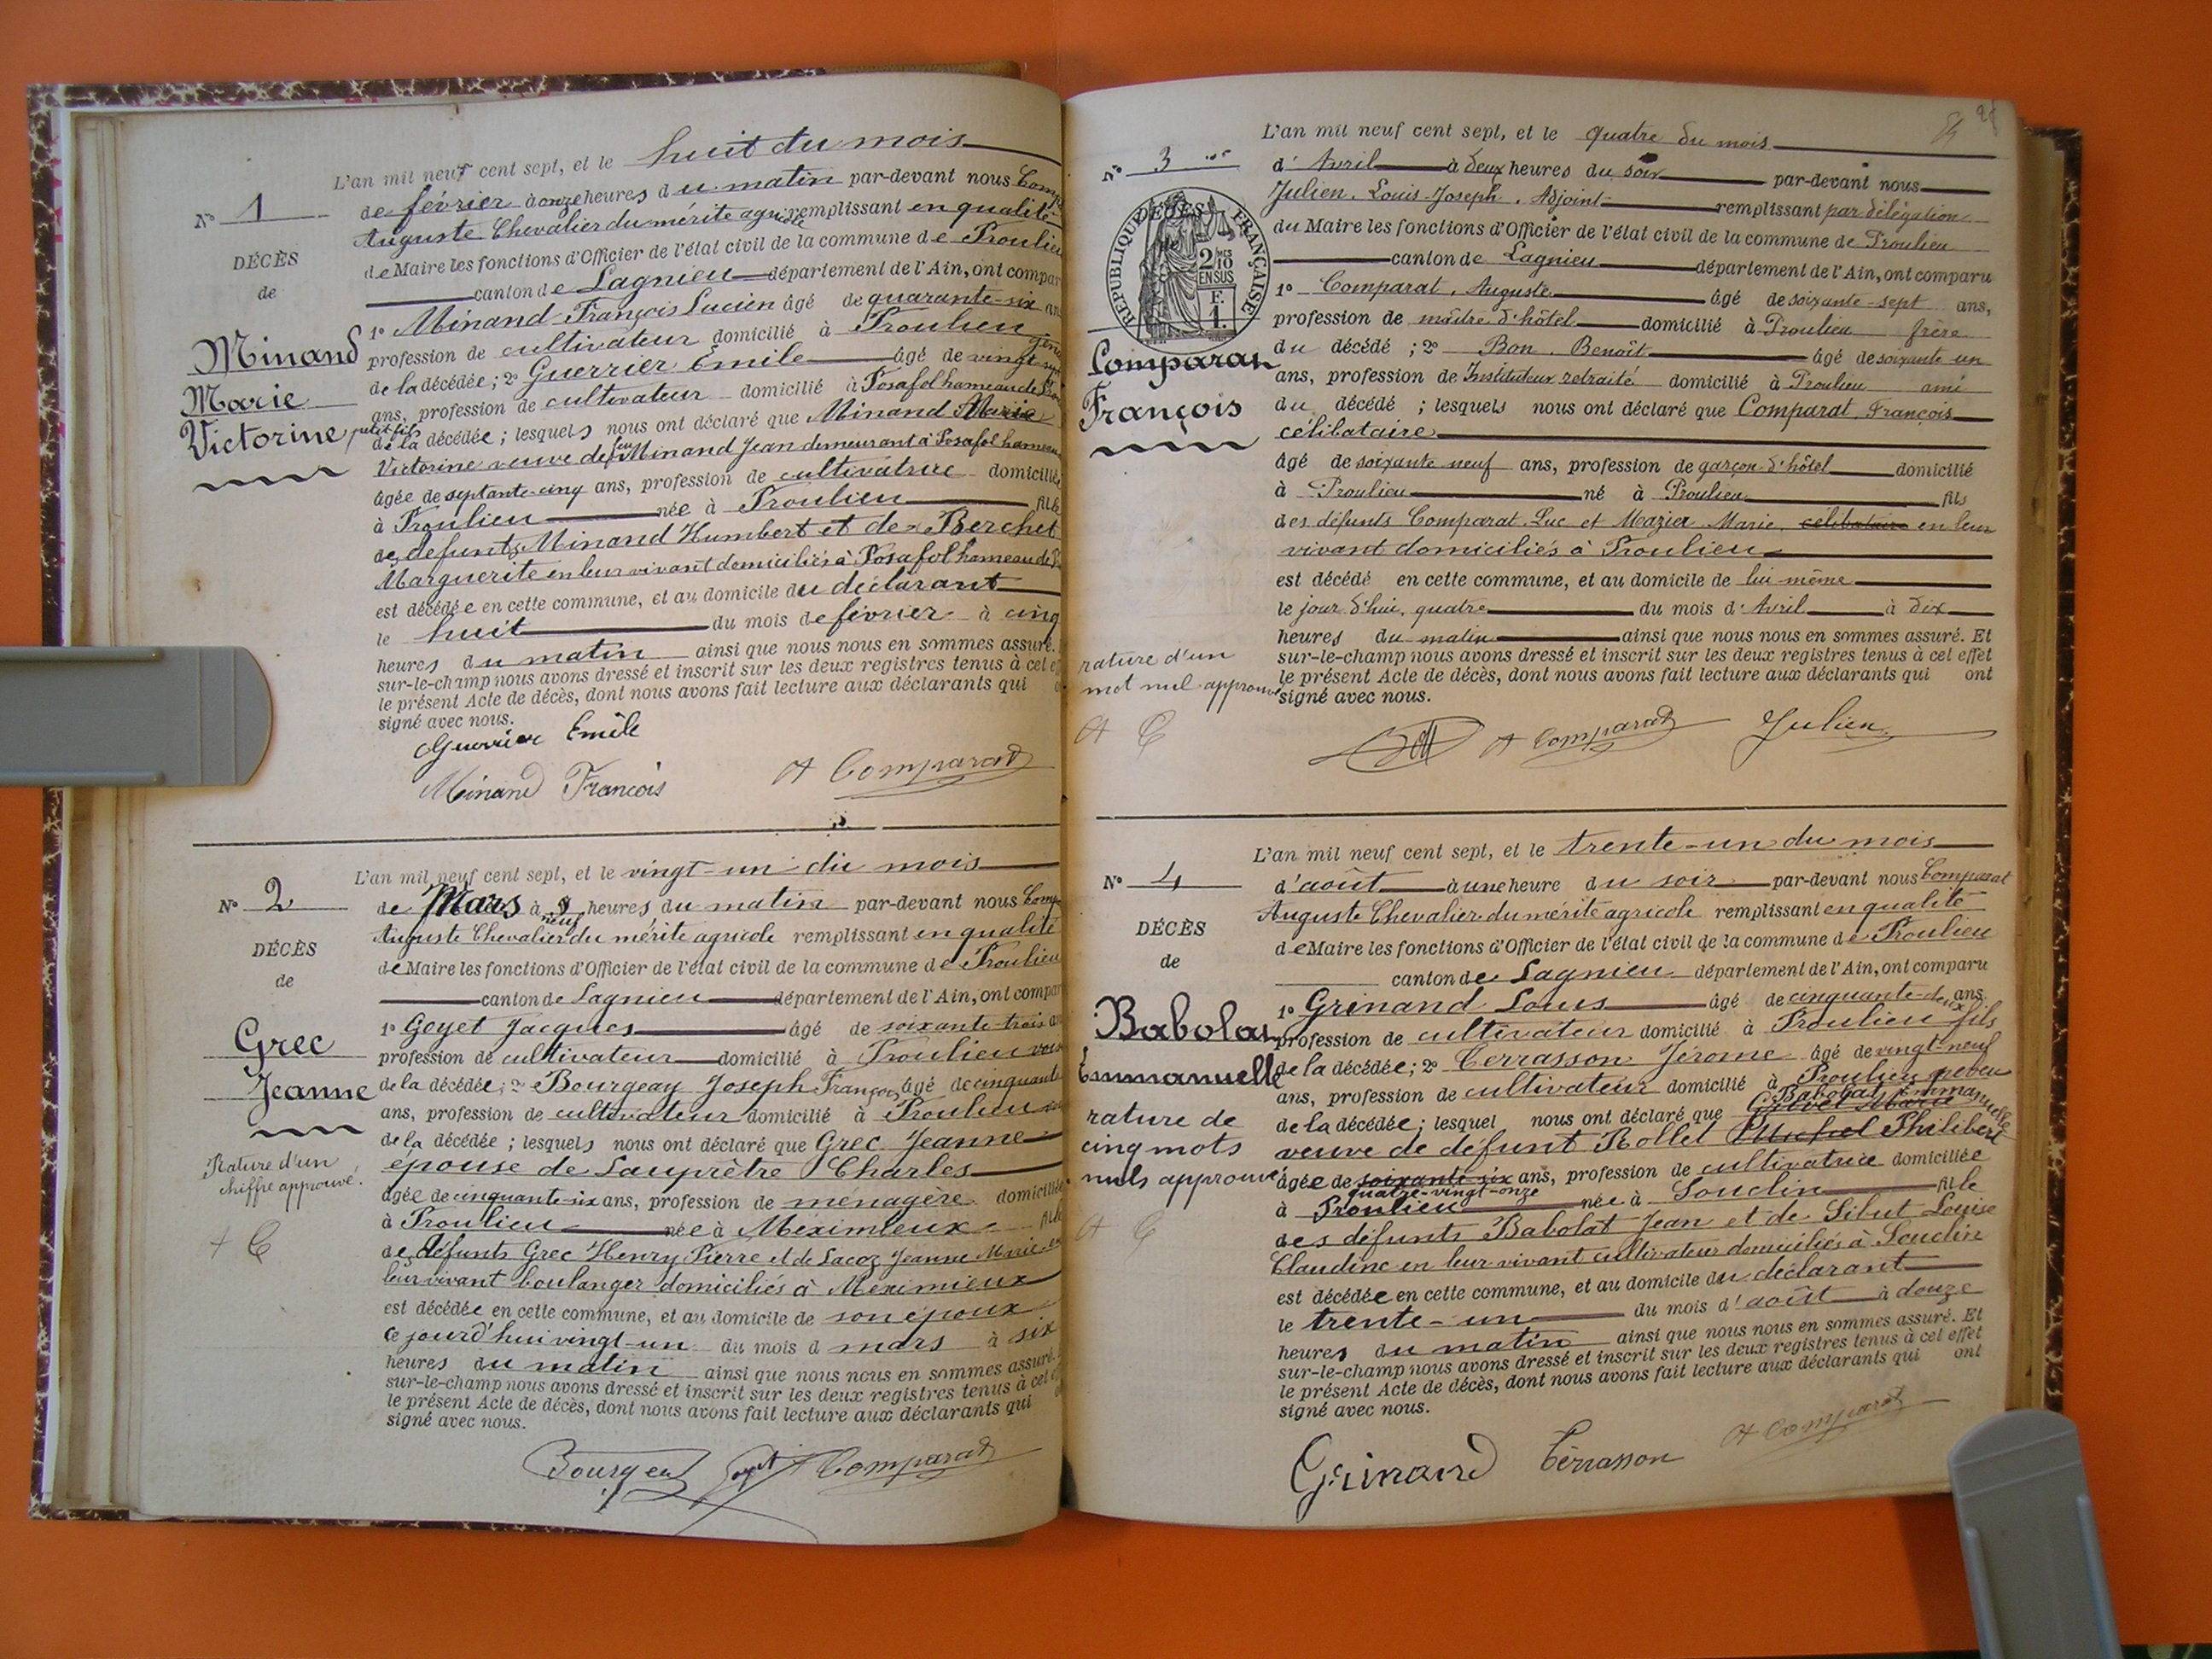 L'an mil neuf cent sept, et le huit du mois
Nº 1
de février à onze heures du matin par-devant nous
Auguste Chevalier du mérite agricole remplissant en qualité
DÉCÈS
de Maire les fonctions d'Officier de l'état civil de la commune de Proulieu
de
canton de Lagnieu département de l'Ain, ont
1º Minand François Lucien âgé de quarante-six
Minand
Marie
Victorine
profession de cultivateur domicilié à Proulieu
de la décédée; 2º Guerrier Emile âgé de
ans, profession de cultivateur domicilié à Posafol hameau de
petit fils
de la décédée; lesquels nous ont déclaré que Minand Marie
Victorine veuve de feu Minand Jean demeurant à Posafol
âgée de septante-cinq ans, profession de cultivatrice domiciliée
à Proulieu née à Proulieu fille
de défunts Minand Humbert et de Berchet
Marguerite en leur vivant domiciliés à Posafol hameau de
est décédée en cette commune, et au domicile du déclarant
le huit du mois de février à cinq
heures du matin ainsi que nous nous en sommes assuré.
sur-le-champ nous avons dressé et inscrit sur les deux registres tenus à cet
le présent Acte de décès, dont nous avons fait lecture aux déclarants qui
signé avec nous.
Guerrier Emile
Minand François
A Comparat
L'an mil neuf cent sept, et le vingt-un du mois
Nº 2
de Mars à neuf heures du matin par-devant nous
Auguste Chevalier du mérite agricole remplissant en qualité
DÉCÈS
de Maire les fonctions d'Officier de l'état civil de la commune de Proulieu
de
canton de Lagnieu département de l'Ain, ont
1º Goyet Jacques âgé de soixante-trois
Grec
Jeanne
profession de cultivateur domicilié à Proulieu
de la décédée; 2º Bourgeay Joseph François âgé de cinquante
ans, profession de cultivateur domicilié à Proulieu
de la décédée; lesquels nous ont déclaré que Grec Jeanne
épouse de Lauprètre Charles
Rature d'un
chiffre approuvé.
A C
âgée de cinquante-six ans, profession de ménagère domiciliée
à Proulieu née à Meximieux fille
de défunts Grec Henry Pierre et de Lacoz Jeanne Marie en
leur vivant boulanger domiciliés à Meximieux
est décédée en cette commune, et au domicile de son époux
ce jourd'hui vingt-un du mois d mars à six
heures du matin ainsi que nous nous en sommes assuré.
sur-le-champ nous avons dressé et inscrit sur les deux registres tenus à cet
le présent Acte de décès, dont nous avons fait lecture aux déclarants qui
signé avec nous.
Bourgeay Goyet A Comparat
L'an mil neuf cent sept, et le quatre du mois
Nº 3
d' Avril à deux heures du soir par-devant nous
Julien, Louis Joseph, Adjoint remplissant par délégation
du Maire les fonctions d'Officier de l'état civil de la commune de Proulieu
canton de Lagnieu département de l'Ain, ont comparu
RÉPUBLIQUE FRANÇAISE
DÉCÈS
2/10
EN SUS
F.
1.
1º Comparat, Auguste âgé de soixante-sept ans,
profession de maître d'hôtel domicilié à Proulieu frère
Comparat
François
du décédé; 2º Bon, Benoît âgé de soixante un
ans, profession de Instituteur retraité domicilié à Proulieu ami
du décédé; lesquels nous ont déclaré que Comparat François
célibataire
âgé de soixante neuf ans, profession de garçon d'hôtel domicilié
à Proulieu né à Proulieu fils
des défunts Comparat Luc et Mazier Marie, célibataire en leur
vivant domiciliés à Proulieu
est décédé en cette commune, et au domicile de lui-même
le jour d'hui, quatre du mois d'Avril à dix
heures du matin ainsi que nous nous en sommes assuré. Et
sur-le-champ nous avons dressé et inscrit sur les deux registres tenus à cet effet
le présent Acte de décès, dont nous avons fait lecture aux déclarants qui ont
signé avec nous.
rature d'un
mot nul approuvé
A C
A Comparat Julien
L'an mil neuf cent sept, et le trente-un du mois
Nº 4
d'août à une heure du soir par-devant nous Comparat
Auguste Chevalier du mérite agricole remplissant en qualité
DÉCÈS
de Maire les fonctions d'Officier de l'état civil de la commune de Proulieu
de
canton de Lagnieu département de l'Ain, ont comparu
1º Grinand Louis âgé de cinquante-deux ans
Babolat
Emmanuelle
profession de cultivateur domicilié à Proulieu fils
de la décédée; 2º Terrasson Jérome âgé de vingt-neuf
ans, profession de cultivateur domicilié à Proulieu neveu
Babolat Emmanuelle
de la décédée; lesquel nous ont déclaré que Grivet Marie
veuve de défunt Rollet Philibert
rature de
cinq mots
nuls approuvé
A C
âgée de soixante six ans, profession de cultivatrice domiciliée
quatre-vingt-onze
à Proulieu née à Souclin fille
des défunts Babolat Jean et de Sibut Louise
Claudine en leur vivant cultivateur domiciliés à Souclin
est décédée en cette commune, et au domicile du déclarant
le trente-un du mois d'août à douze
heures du matin ainsi que nous nous en sommes assuré. Et
sur-le-champ nous avons dressé et inscrit sur les deux registres tenus à cet effet
le présent Acte de décès, dont nous avons fait lecture aux déclarants qui ont
signé avec nous.
Grinand Terrasson A Comparat